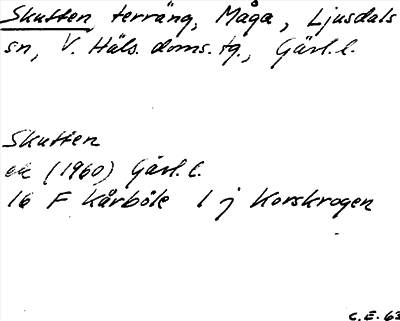 Skutten, terräng, Måga, Ljusdals
sn, V. Häls. doms. tg., Gävl. l.
Skutten
ek (1960) Gävl. l.
16 F Kårböle 1 j Korskrogen
C.E. 63